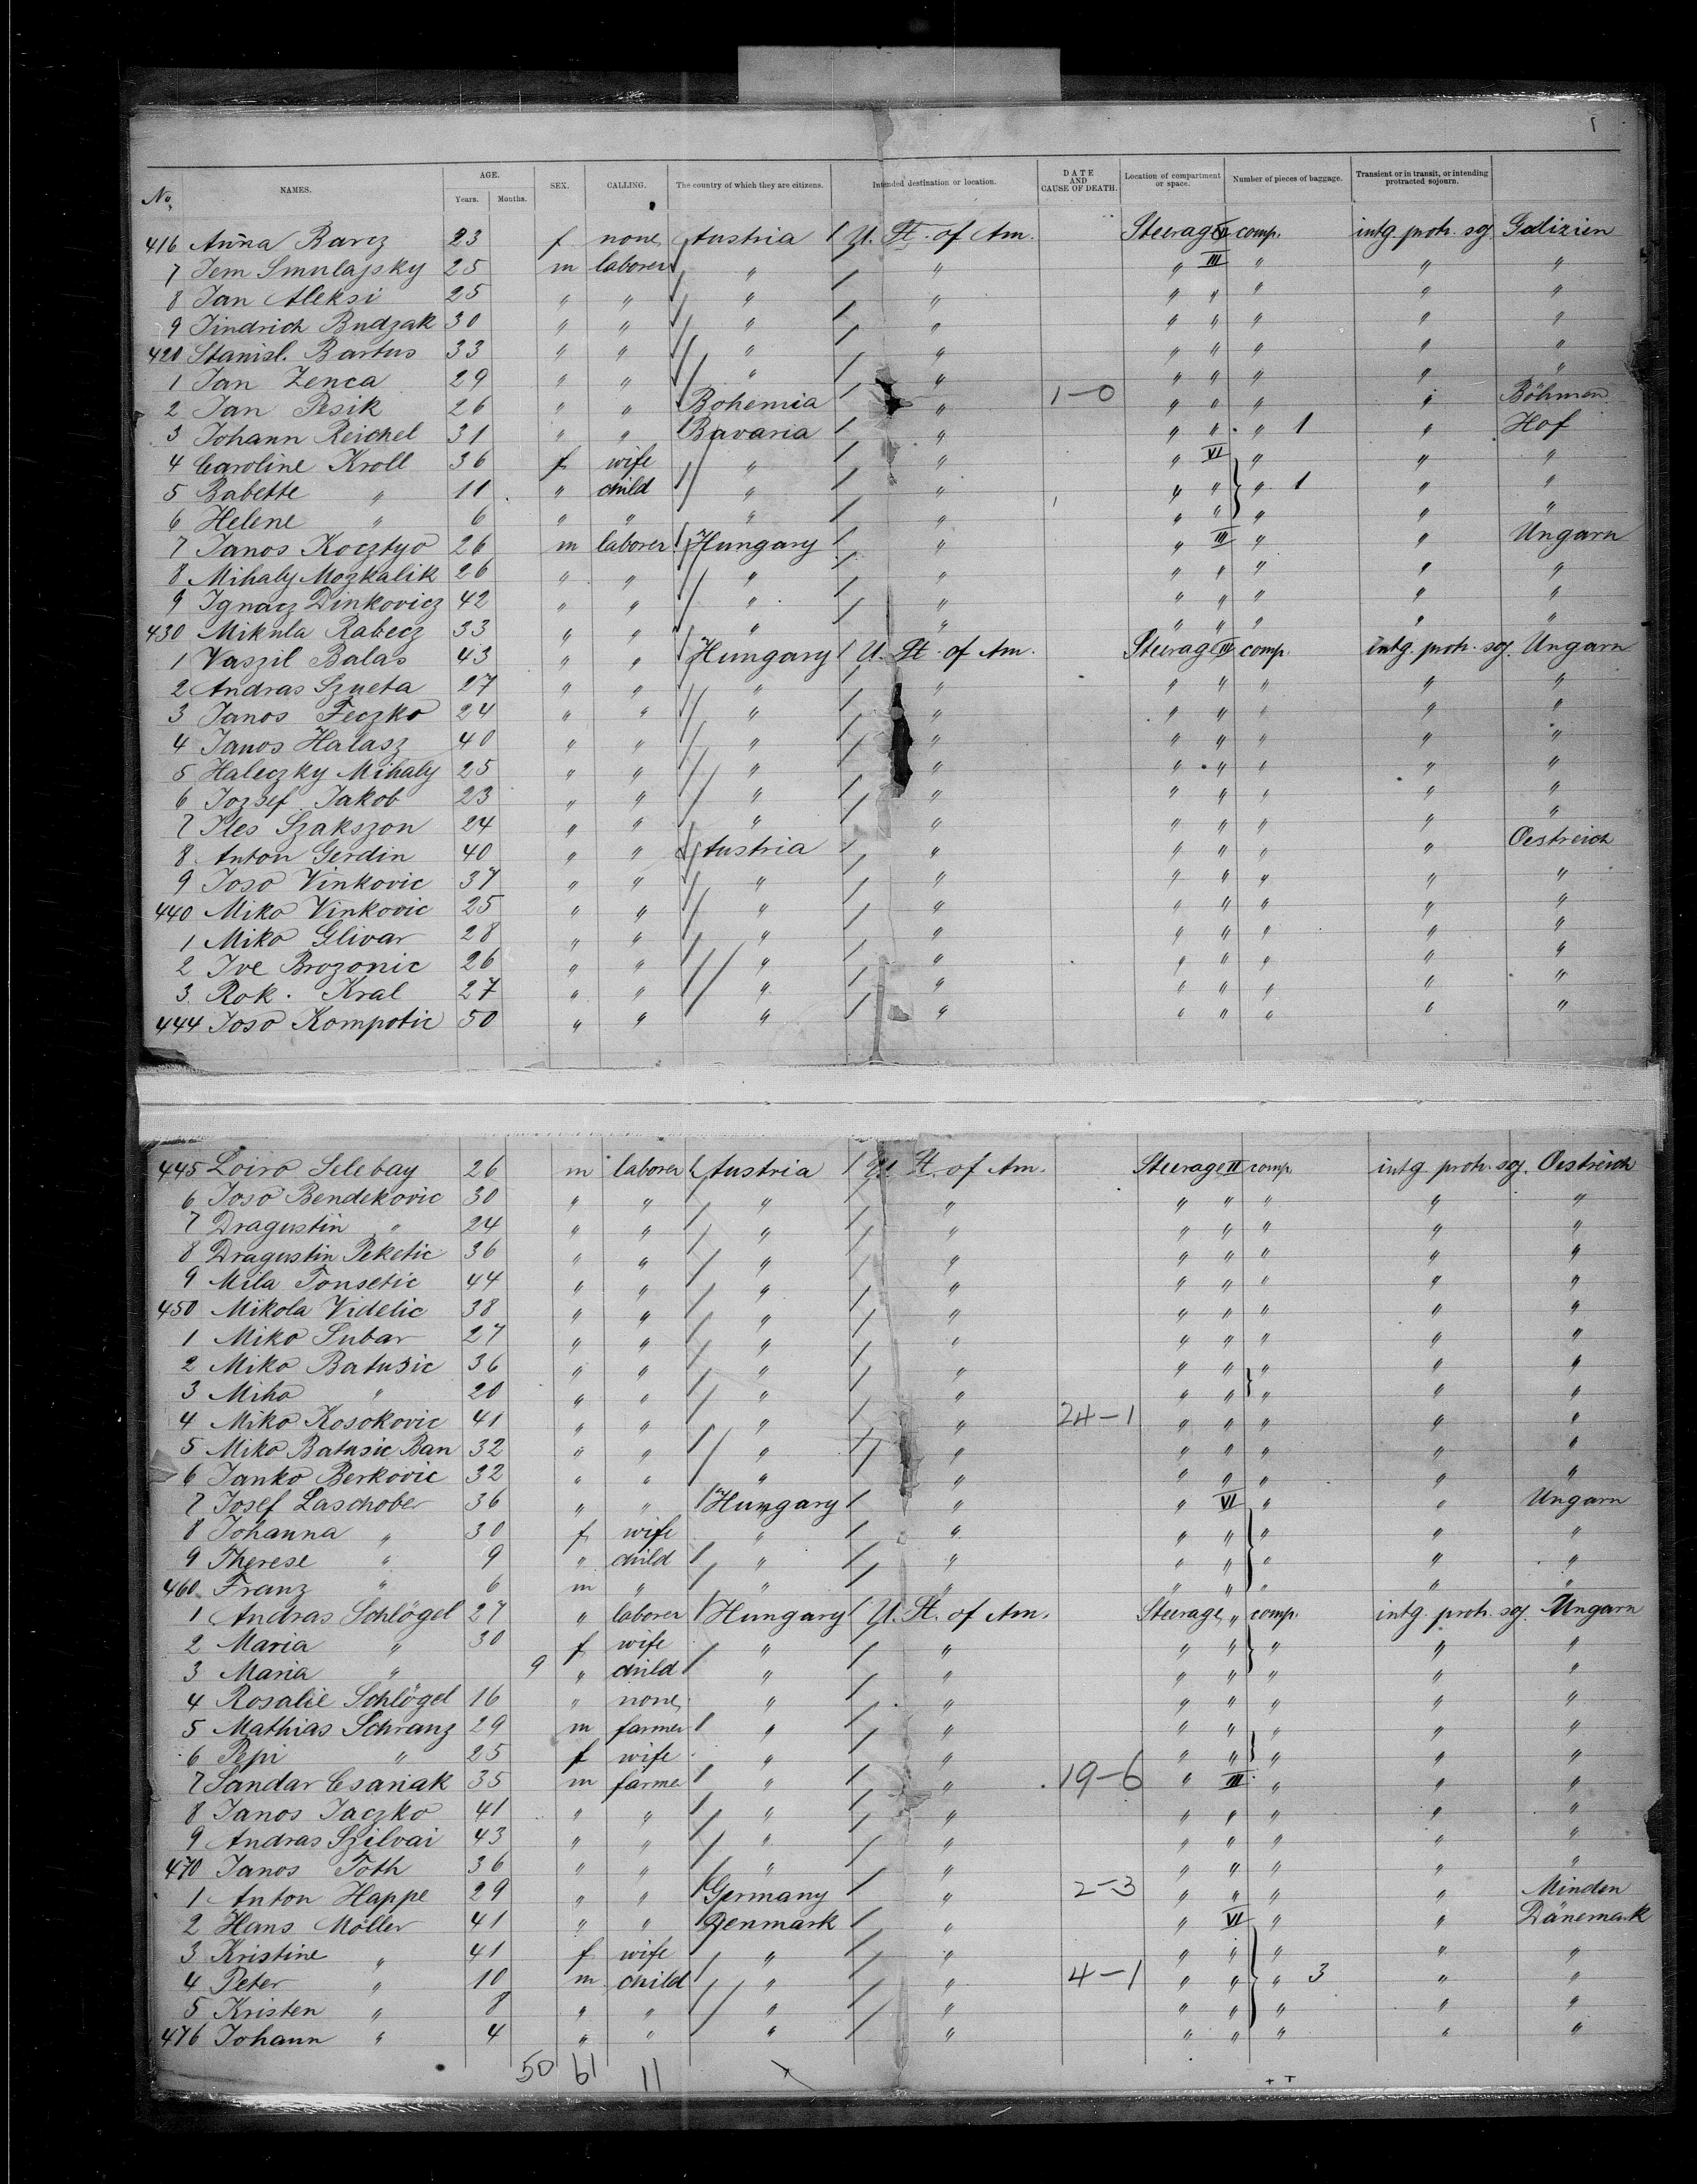 No. NAMES. AGE. Years. Months. SEX. CALLING. The country of which they are citizens. Intended destination or location. DATE AND CAUSE OF DEATH. Location of compartment or space. Number of pieces of baggage. Transient or in transit, or intending protracted sojourn.
416 Anna Barcz 23 f none Austria / U. St. of Am. Steerage comp. intg protr. soj Galizien
7 Jem Smulajsky 25 m laborer " / " " III " " "
8 Jan Aleksi 25 " " " / " " " " " "
9 Jindrich Budzak 30 " " " / " " " " " "
420 Stanisl. Bartus 33 " " " / " " " " " "
1 Jan Zenca 29 " " " / " " " " " "
2 Jan Pesik 26 " " Bohemia / " 1-0 " " " " Böhmen
3 Johann Reichel 31 " " Bavaria / " " " " 1 " Hof
4 Caroline Kroll 36 f wife " / " " VI " " "
5 Babette " 11 " child " / " " " " 1 " "
6 Helene " 6 " " " / " " " " " "
7 Janos Kocztyo 26 m laborer Hungary / " " III " " Ungarn
8 Mihaly Mozkalik 26 " " " / " " " " " "
9 Ignacz Dinkovicz 42 " " " / " " " " " "
430 Mikula Rabecz 33 " " " / " " " " " "
1 Vaszil Balas 43 " " Hungary / U. St. of Am. Steerage III comp. intg. protr. soj. Ungarn
2 Andras Szueta 27 " " " / " " " " " "
3 Janos Feczko 24 " " " / " " " " " "
4 Janos Halasz 40 " " " / " " " " " "
5 Haleczky Mihaly 25 " " " / " " " " " "
6 Jozsef Jakob 23 " " " / " " " " " "
7 Iles Szakszon 24 " " " / " " " " " "
8 Anton Gerdin 40 " " Austria / " " " " " Oestreich
9 Joso Vinkovic 37 " " " / " " " " " "
440 Miko Vinkovic 25 " " " / " " " " " "
1 Miko Glivar 28 " " " / " " " " " "
2 Ive Brozonic 26 " " " / " " " " " "
3 Rok. Kral 27 " " " / " " " " " "
444 Joso Kompotic 50 " " " / " " " " " "
445 Loiro Selebay 26 m laborer Austria / U. St. of Am. Steerage III comp. intg. protr. soj. Oestreich
6 Joso Bendekovic 30 " " " / " " " " " "
7 Dragustin " 24 " " " / " " " " " "
8 Dragustin Peketic 36 " " " / " " " " " "
9 Mila Tonsetic 44 " " " / " " " " " "
450 Mikola Videlic 38 " " " / " " " " " "
1 Miko Subar 27 " " " / " " " " " "
2 Miko Batusic 36 " " " / " " " " " "
3 Miho " 20 " " " / " " " " " "
4 Miko Kosokovic 41 " " " / " 24-1 " " " " "
5 Miko Batusic Ban 32 " " " / " " " " " "
6 Janko Berkovic 32 " " " / " " " " " "
7 Josef Laschober 36 " " Hungary / " " VI " " Ungarn
8 Johanna " 30 f wife " / " " " " " "
9 Therese " 9 " child " / " " " " " "
460 Franz " 6 m " " / " " " " " "
1 Andras Schlögel 27 " laborer Hungary / U. St. of Am. Steerage " comp. intg. protr. soj. Ungarn
2 Maria " 30 f wife " / " " " " " "
3 Maria " 9 " child " / " " " " " "
4 Rosalie Schlögel 16 " none " / " " " " " "
5 Mathias Schranz 29 m farmer " / " " " " " "
6 Pepi " 25 f wife " / " " " " " "
7 Sandar Csaniak 35 m farmer " / " 19-6 " III " " "
8 Janos Jaczko 41 " " " / " " " " " "
9 Andras Szilvai 43 " " " / " " " " " "
470 Janos Toth 36 " " " / " " " " " "
1 Anton Happe 29 " " Germany / " 2-3 " " " " Minden
2 Hans Möller 41 " " Denmark / " " VI " " Dänemark
3 Kristine " 41 f wife " / " " " " " "
4 Peter " 10 m child " / " 4-1 " " " 3 " "
5 Kristen " 8 " " " / " " " " " "
476 Johann " 4 " " " / " " " " " "
50 61 11